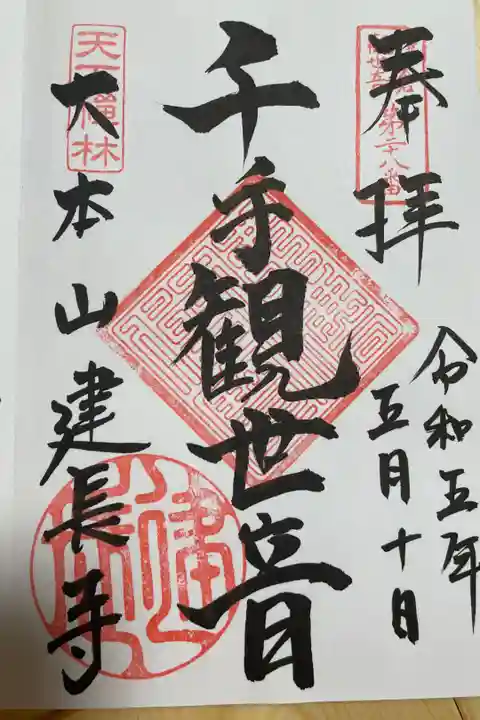 奉拝
第二十八番
令和五年
五月十日
千手観世音
天下禅林
大本山建長寺